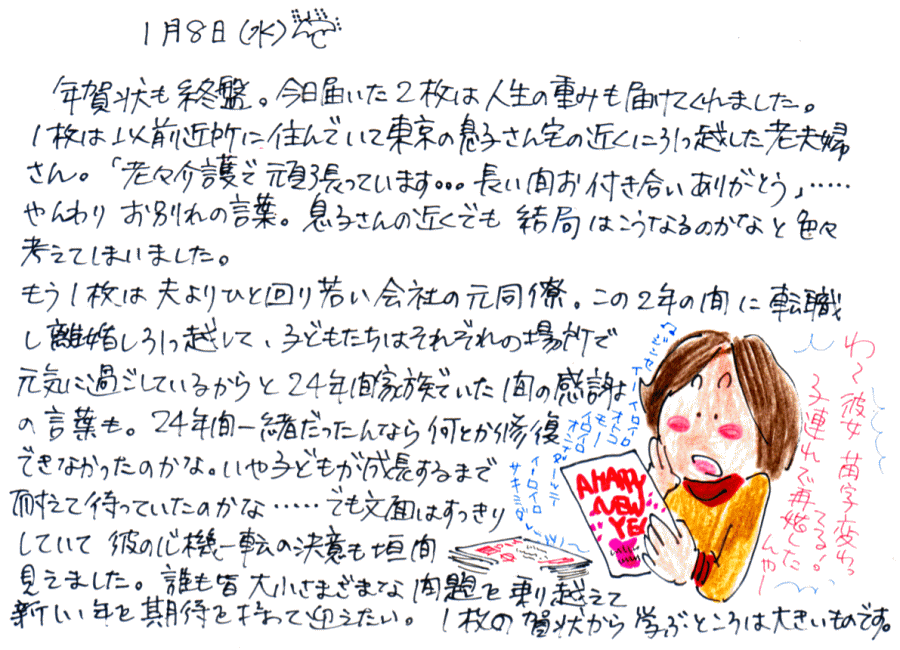 1月8日(水)
年賀状も終盤。今日届いた2枚は人生の重みも届けてくれました。
1枚は以前近所に住んでいて東京の息子さん宅の近くに引っ越した老夫婦
さん。「老々介護で頑張っています・・・長い間お付き合いありがとう」・・・・・
やんわりお別れの言葉。息子さんの近くでも結局はこうなるのかなと色々
考えてしまいました。
もう1枚は夫よりひと回り若い会社の元同僚。この2年の間に転職
し離婚し引っ越して、子どもたちはそれぞれの場所で
元気に過ごしているからと24年間家族でいた間の感謝
の言葉も。24年間一緒だったんなら何とか修復
できなかったのかな。いや子どもが成長するまで
耐えて待っていたのかな・・・・・でも文面はすっきり
していて彼の心機一転の決意も垣間
見えました。誰も皆大小さまざまな問題を乗り越えて
新しい年を期待を持って迎えたい。1枚の賀状から学ぶところは大きいものです。
わく彼女苗字変わっ
てるぅ。
子連れで再婚した
んやー
A HAPPY
NEW
YE